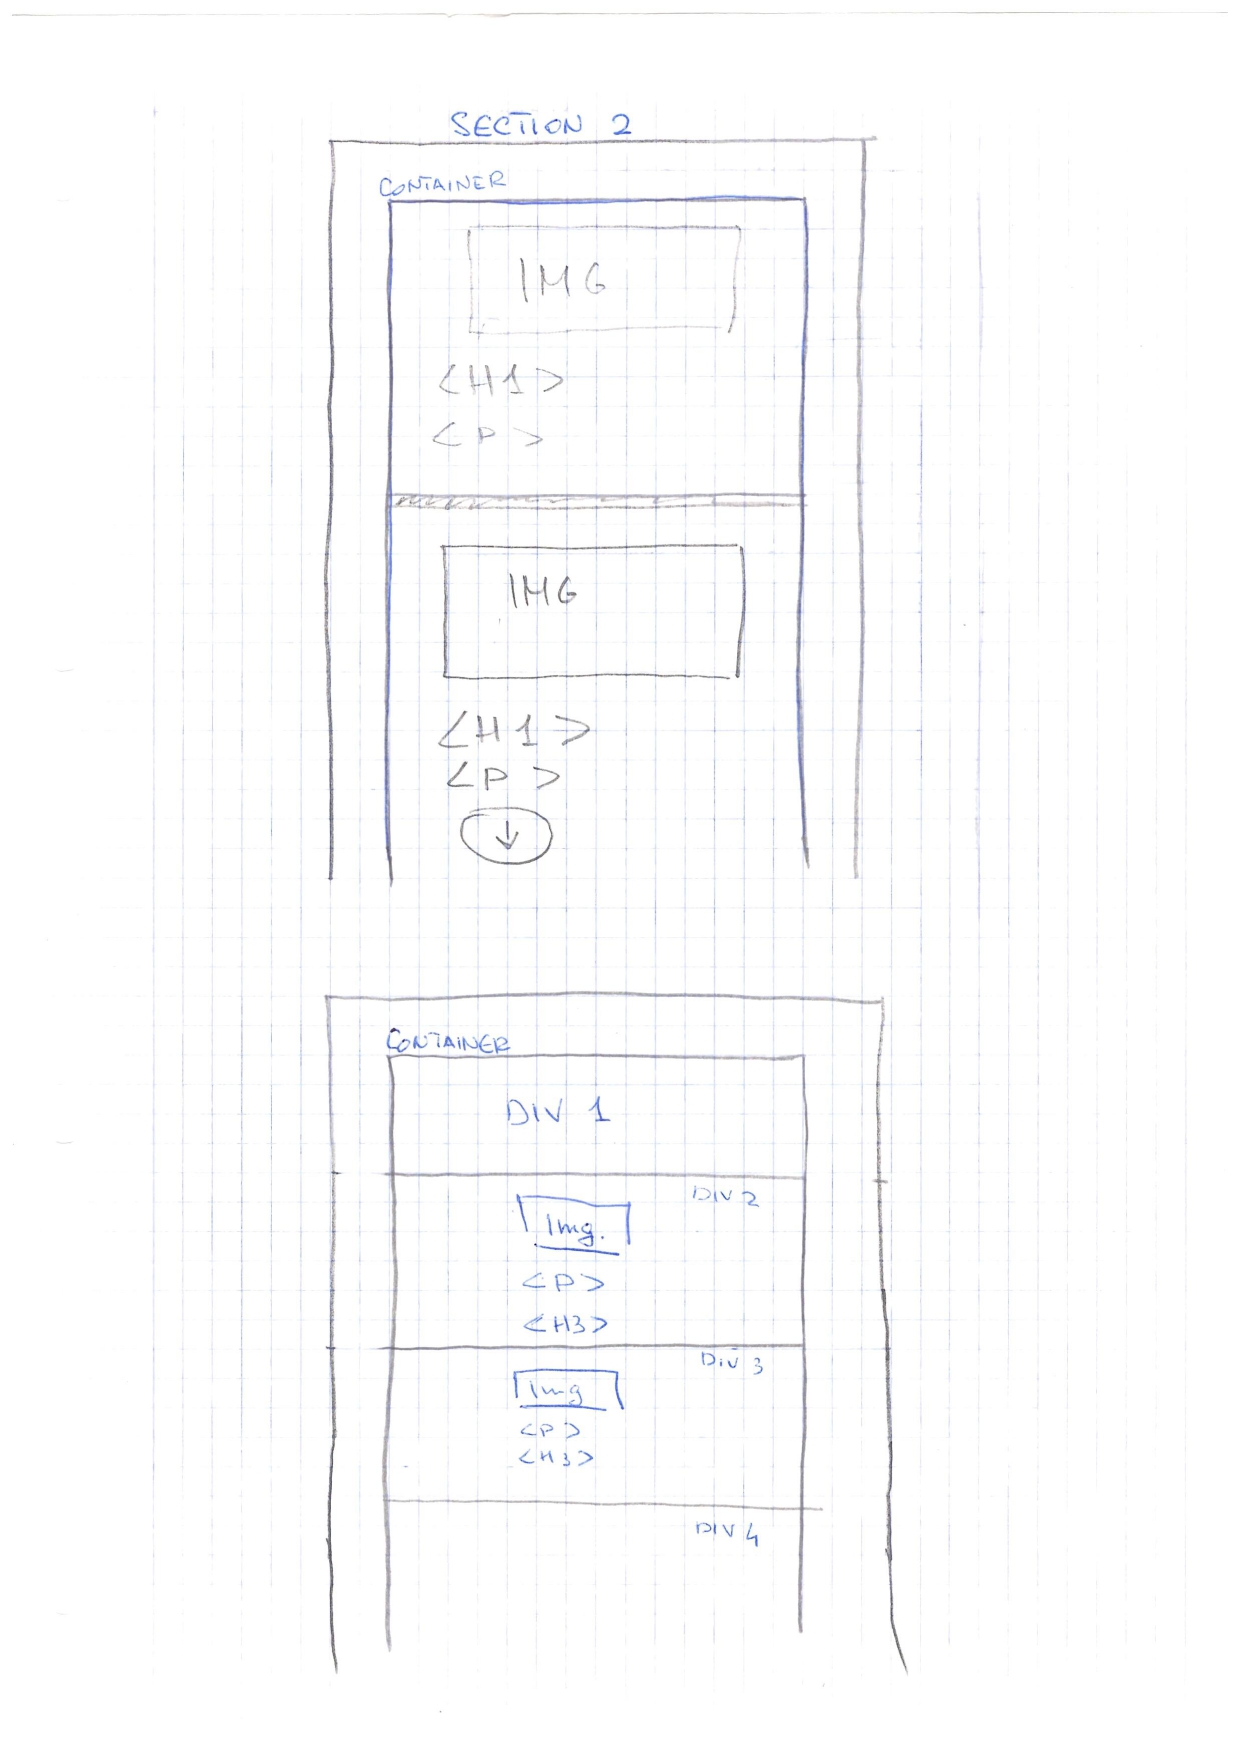 SECTION 2
CONTAINER
IMG
<H1>
<P>
IMG
<H1>
<P>
CONTAINER
DIV 1
DIV 2
Img.
<P>
<H3>
DIV 3
Img
<P>
<H3>
DIV 4